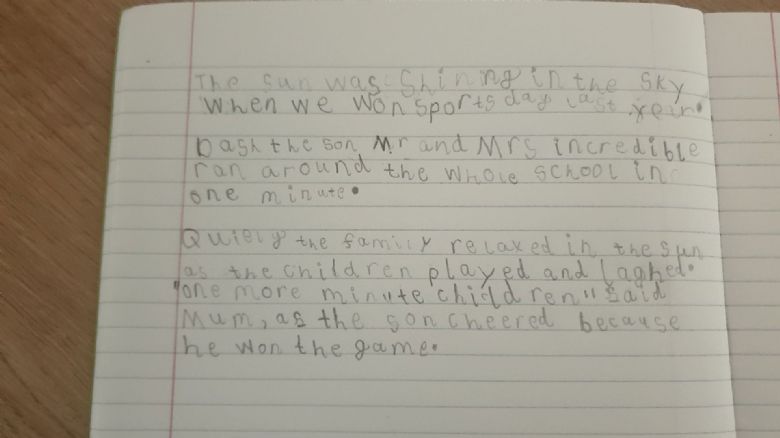 The sun was shining in the sky
when we won sports day last year.
Dash the son Mr and Mrs incredible
ran around the whole school in
one minute.
Quiely the family relaxed in the sun
as the children played and laghed.
"one more minute children" said
Mum, as the son cheered because
he won the game.